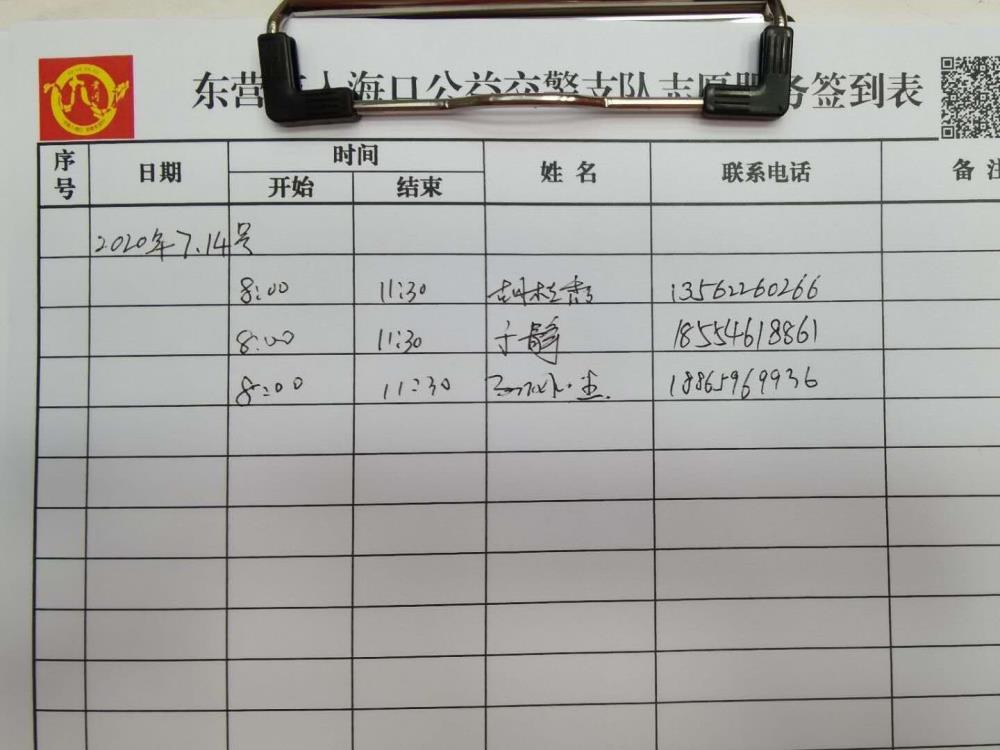 东营 大海口公益交警支队志愿服务签到表
序号 日期 时间 姓 名 联系电话 备 注
开始 结束
2020年7.14号
8:00 11:30 胡桂香 13562260266
8:00 11:30 于静 18554618861
8:00 11:30 18865969936